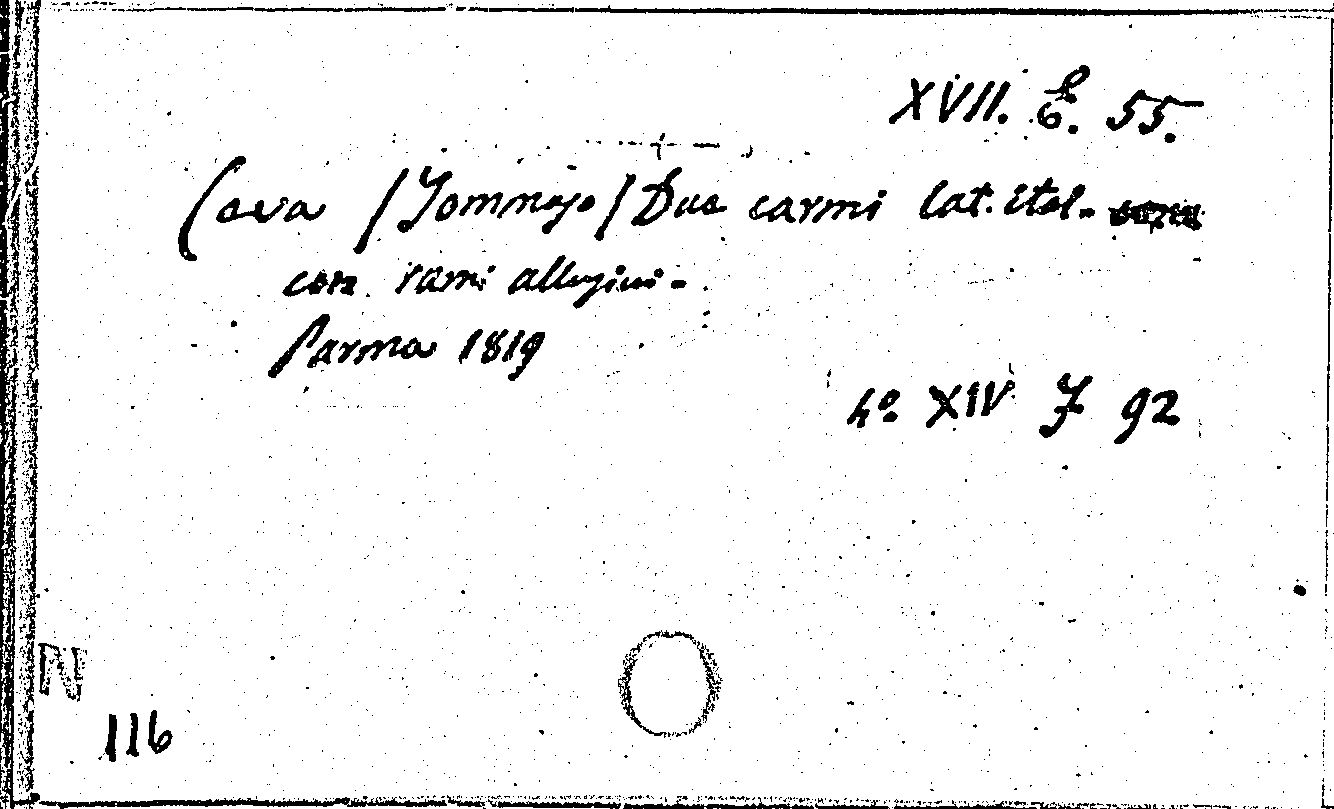 XVII. E. 55.
Cava /Tommaso/ Due carmi lat. ital.
con rami allusivi.
Parma 1819
4º XIV J 92
N
116